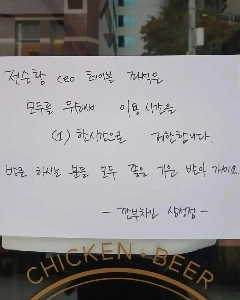 젠슨황 CEO 테이블 좌석은
모두를 위해서 이용 시간을
(1) 한시간으로 제한합니다.
방문 하시는 분들 모두 좋은 기운 받아 가세요.
- 깐부치킨 삼성점 -
CHICKEN & BEER